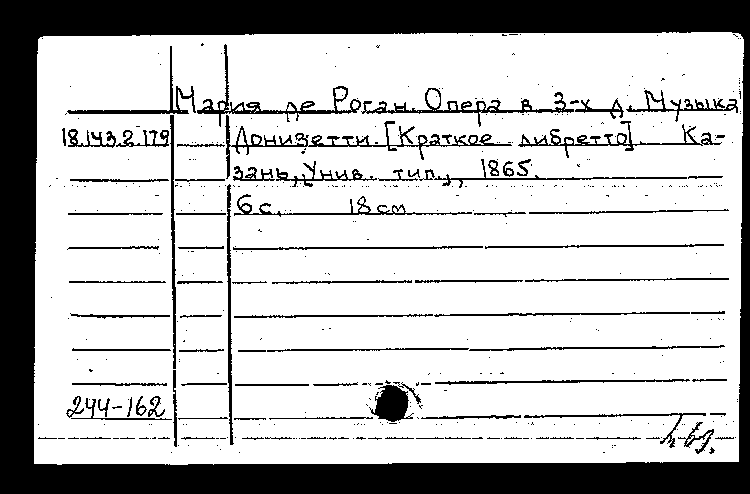 Мария де Роган. Опера в 3-х д. Музыка
18.143.2.179 Донизетти. [Краткое либретто]. Ка-
зань, Унив. тип., 1865.
6 с. 18 см
244-162